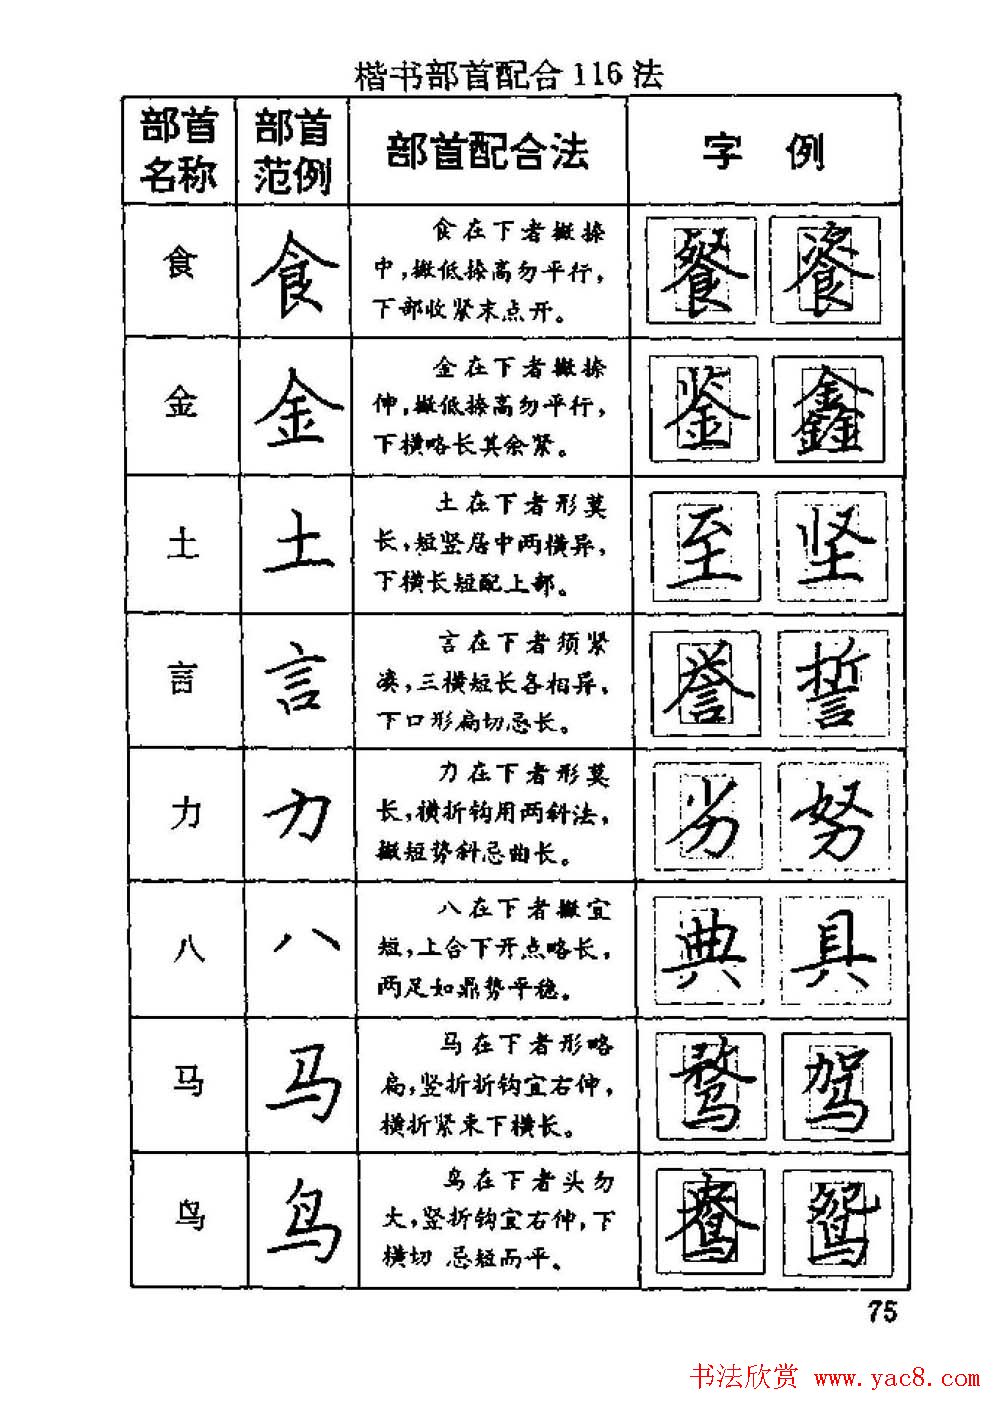 楷书部首配合116法
部首名称 部首范例 部首配合法 字例
食 食 食在下者撇捺
中，撇低捺高勿平行，
下部收紧末点开。
餐 飡
金 金 金在下者撇捺
伸，撇低捺高勿平行，
下横略长其余紧。
鉴 鑫
土 土 土在下者形莫
长，短竖居中两横异，
下横长短配上部。
至 坚
言 言 言在下者须紧
凑，三横短长各相异，
下口形扁切忌长。
誉 誓
力 力 力在下者形莫
长，横折钩用两斜法，
撇短势斜忌曲长。
劣 努
八 八 八在下者撇宜
短，上合下开点略长，
两足如鼎势平稳。
典 具
马 马 马在下者形略
扁，竖折折钩宜右伸，
横折紧束下横长。
骛 驾
鸟 鸟 鸟在下者头勿
大，竖折钩宜右伸，下
横切 忌短而平。
鸯 鸳
75
书法欣赏 www.yac8.com